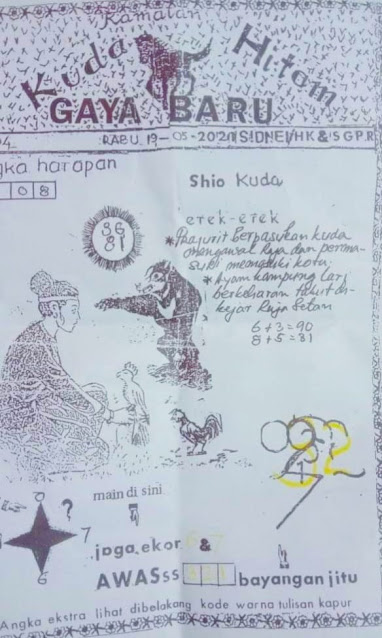 Ramalan
Kuda Hitam
GAYA BARU
RABU 19-05-2020 SIDNEI/HK & SGPR
gka harapan
0 8
Shio Kuda
36
81
erek-erek
* Prajurit Berpasukan kuda
mengawal Raja dan berma-
memasuki kota.
* Ayam kampung lari
berkeliaran takut di-
kejar Raja Setan
6+3=90
8+5=31
0
?
7
6
main di sini
jaga ekor 6 & 7
AWASss
bayangan jitu
Angka ekstra lihat dibelakang kode warna tulisan kapur